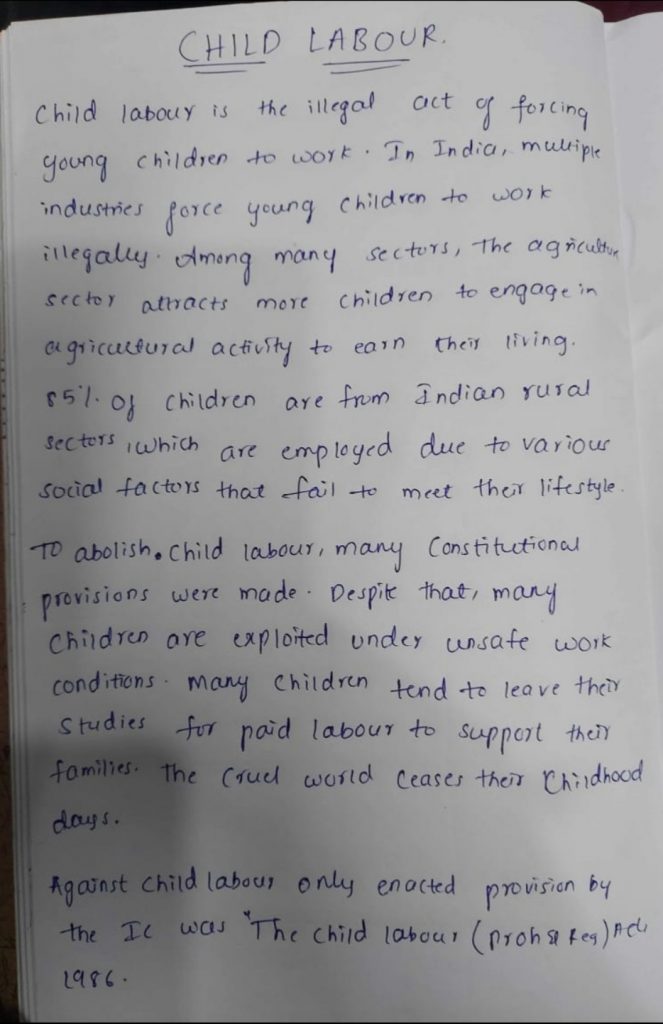 CHILD LABOUR.
Child labour is the illegal act of forcing
young children to work. In India, multiple
industries force young children to work
illegally. Among many sectors, The agriculture
sector attracts more children to engage in
agricultural activity to earn their living.
85%. of children are from Indian rural
sectors, which are employed due to various
social factors that fail to meet their lifestyle.
TO abolish. Child labour, many Constitutional
provisions were made. Despite that, many
Children are exploited under unsafe work
conditions. Many children tend to leave their
Studies for paid labour to support their
families. The Cruel world Ceases their Childhood
days.
Against child labour only enacted provision by
the IC was "The child labour (proh & Reg) Act
1986.